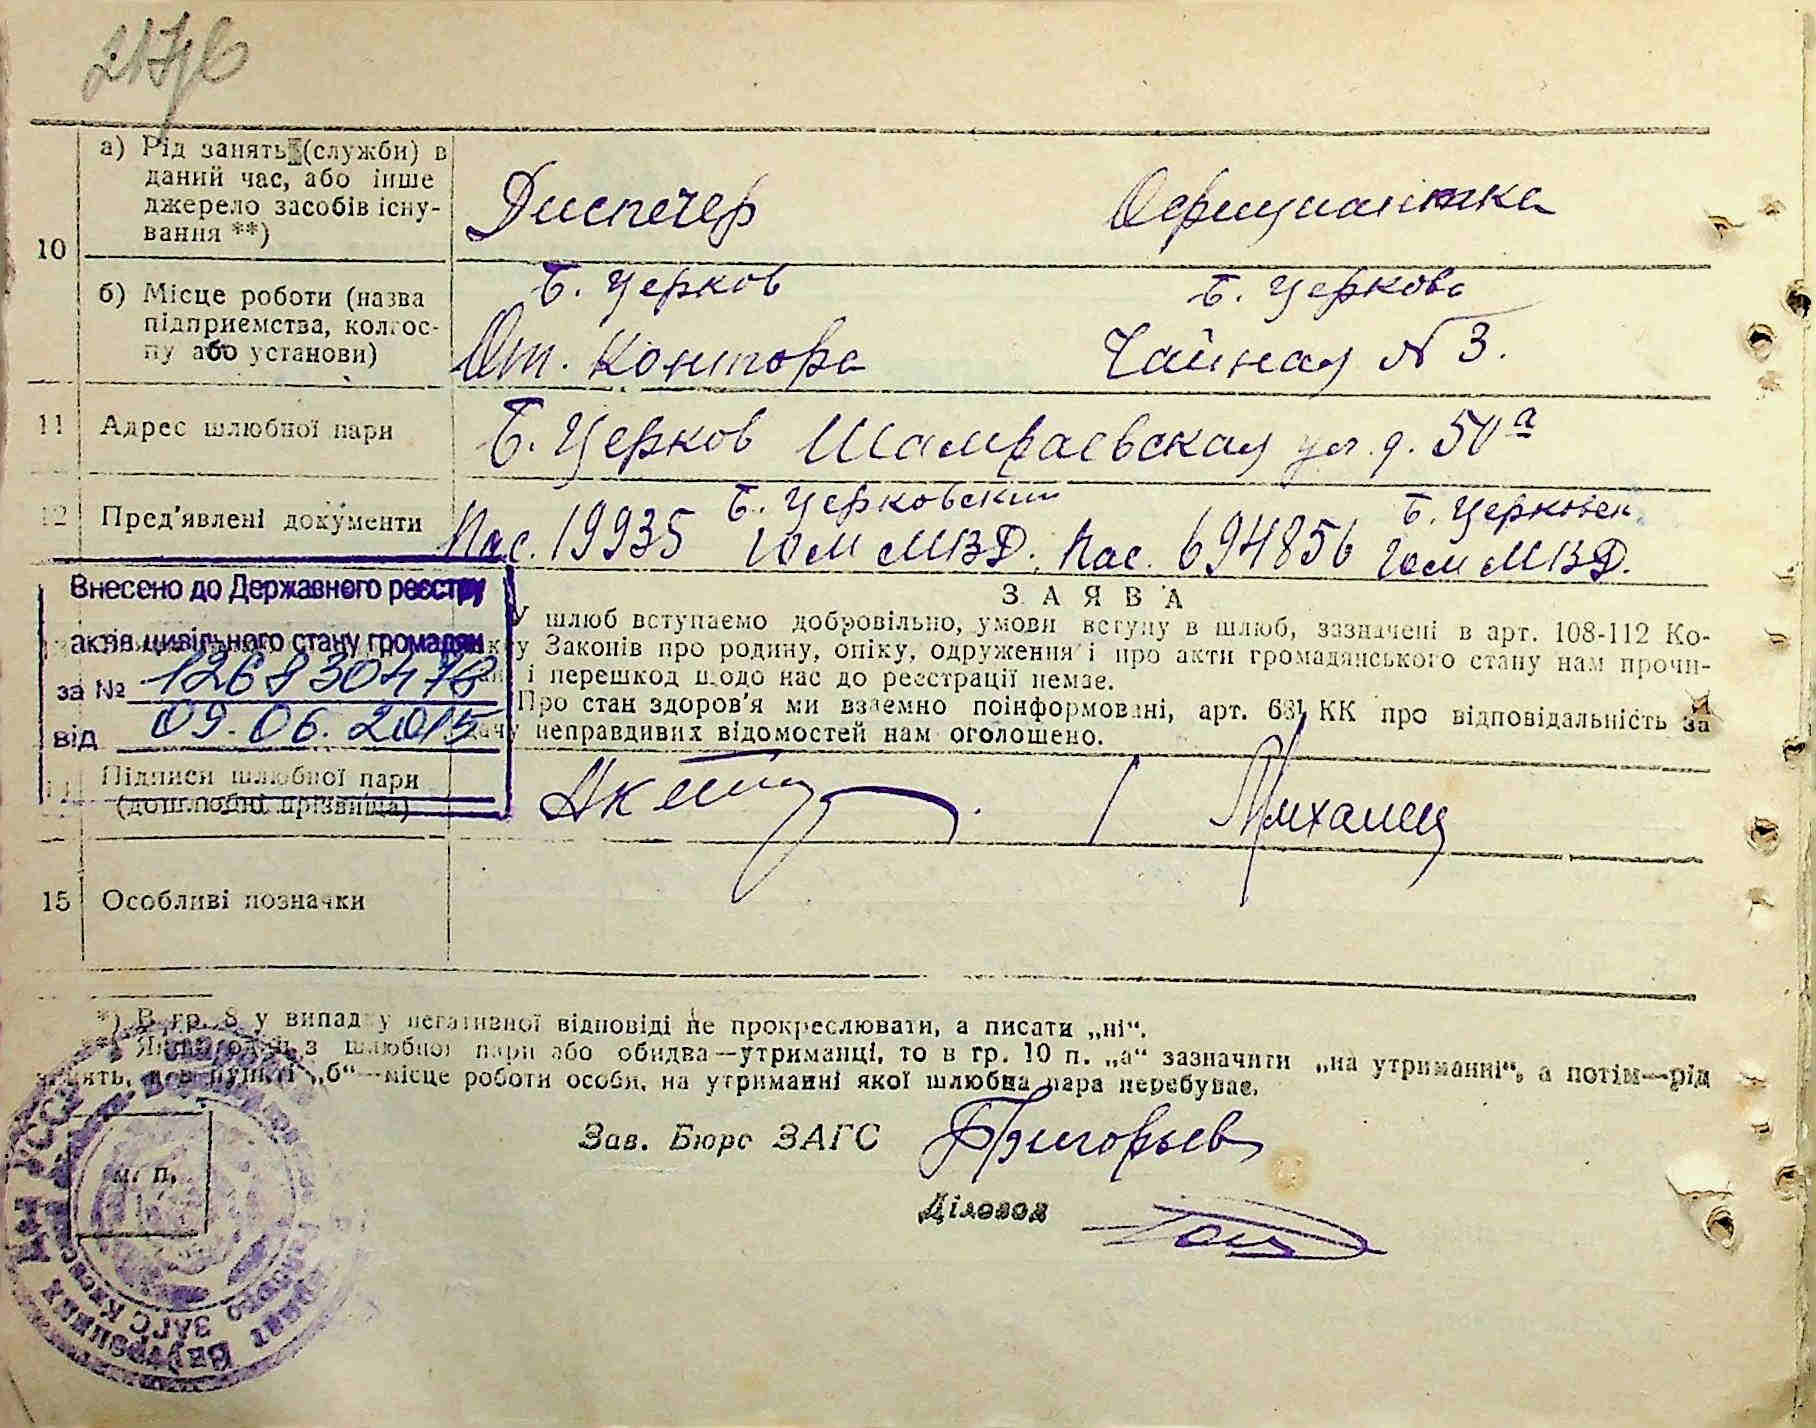 а) Рід занять (служби) в даний час, або інше джерело засобів існування **)
Диспечер
Официантка
10
б) Місце роботи (назва підприємства, колгоспу або установи)
Б. Церков
Б. Церкова
От. Контора
Чайная № 3.
11 Адрес шлюбної пари
Б. Церков Шамраевская ул. д. 50 а
12 Пред'явлені документи
Пас. 19935 Б. Церковский ГОМ МВД.
Пас. 694856 Б. Церковск. ГОМ МВД.
Внесено до Державного реєстру
актів цивільного стану громадян
за №
від 09.06.2015
ЗАЯВА
У шлюб вступаємо добровільно, умови вступу в шлюб, зазначені в арт. 108-112 Ко-
ксу Законів про родину, опіку, одруження і про акти громадянського стану нам прочи-
і перешкод щодо нас до реєстрації немає.
Про стан здоров'я ми взаємно поінформовані, арт. КК про відповідальність за
неправдивих відомостей нам оголошено.
14 Підписи шлюбної пари
(дошлюбні прізвища)
15 Особливі позначки
*) В гр. 8 у випадку негативної відповіді не прокреслювати, а писати „ні“.
**) Якщо один з шлюбної пари або обидва—утриманці, то в гр. 10 п. „а“ зазначити „на утриманні“, а потім—рід
занять, а в пункті „б“—місце роботи особи, на утриманні якої шлюбна пара перебуває.
м. п.
Зав. Бюро ЗАГС Григорьев
Діловод